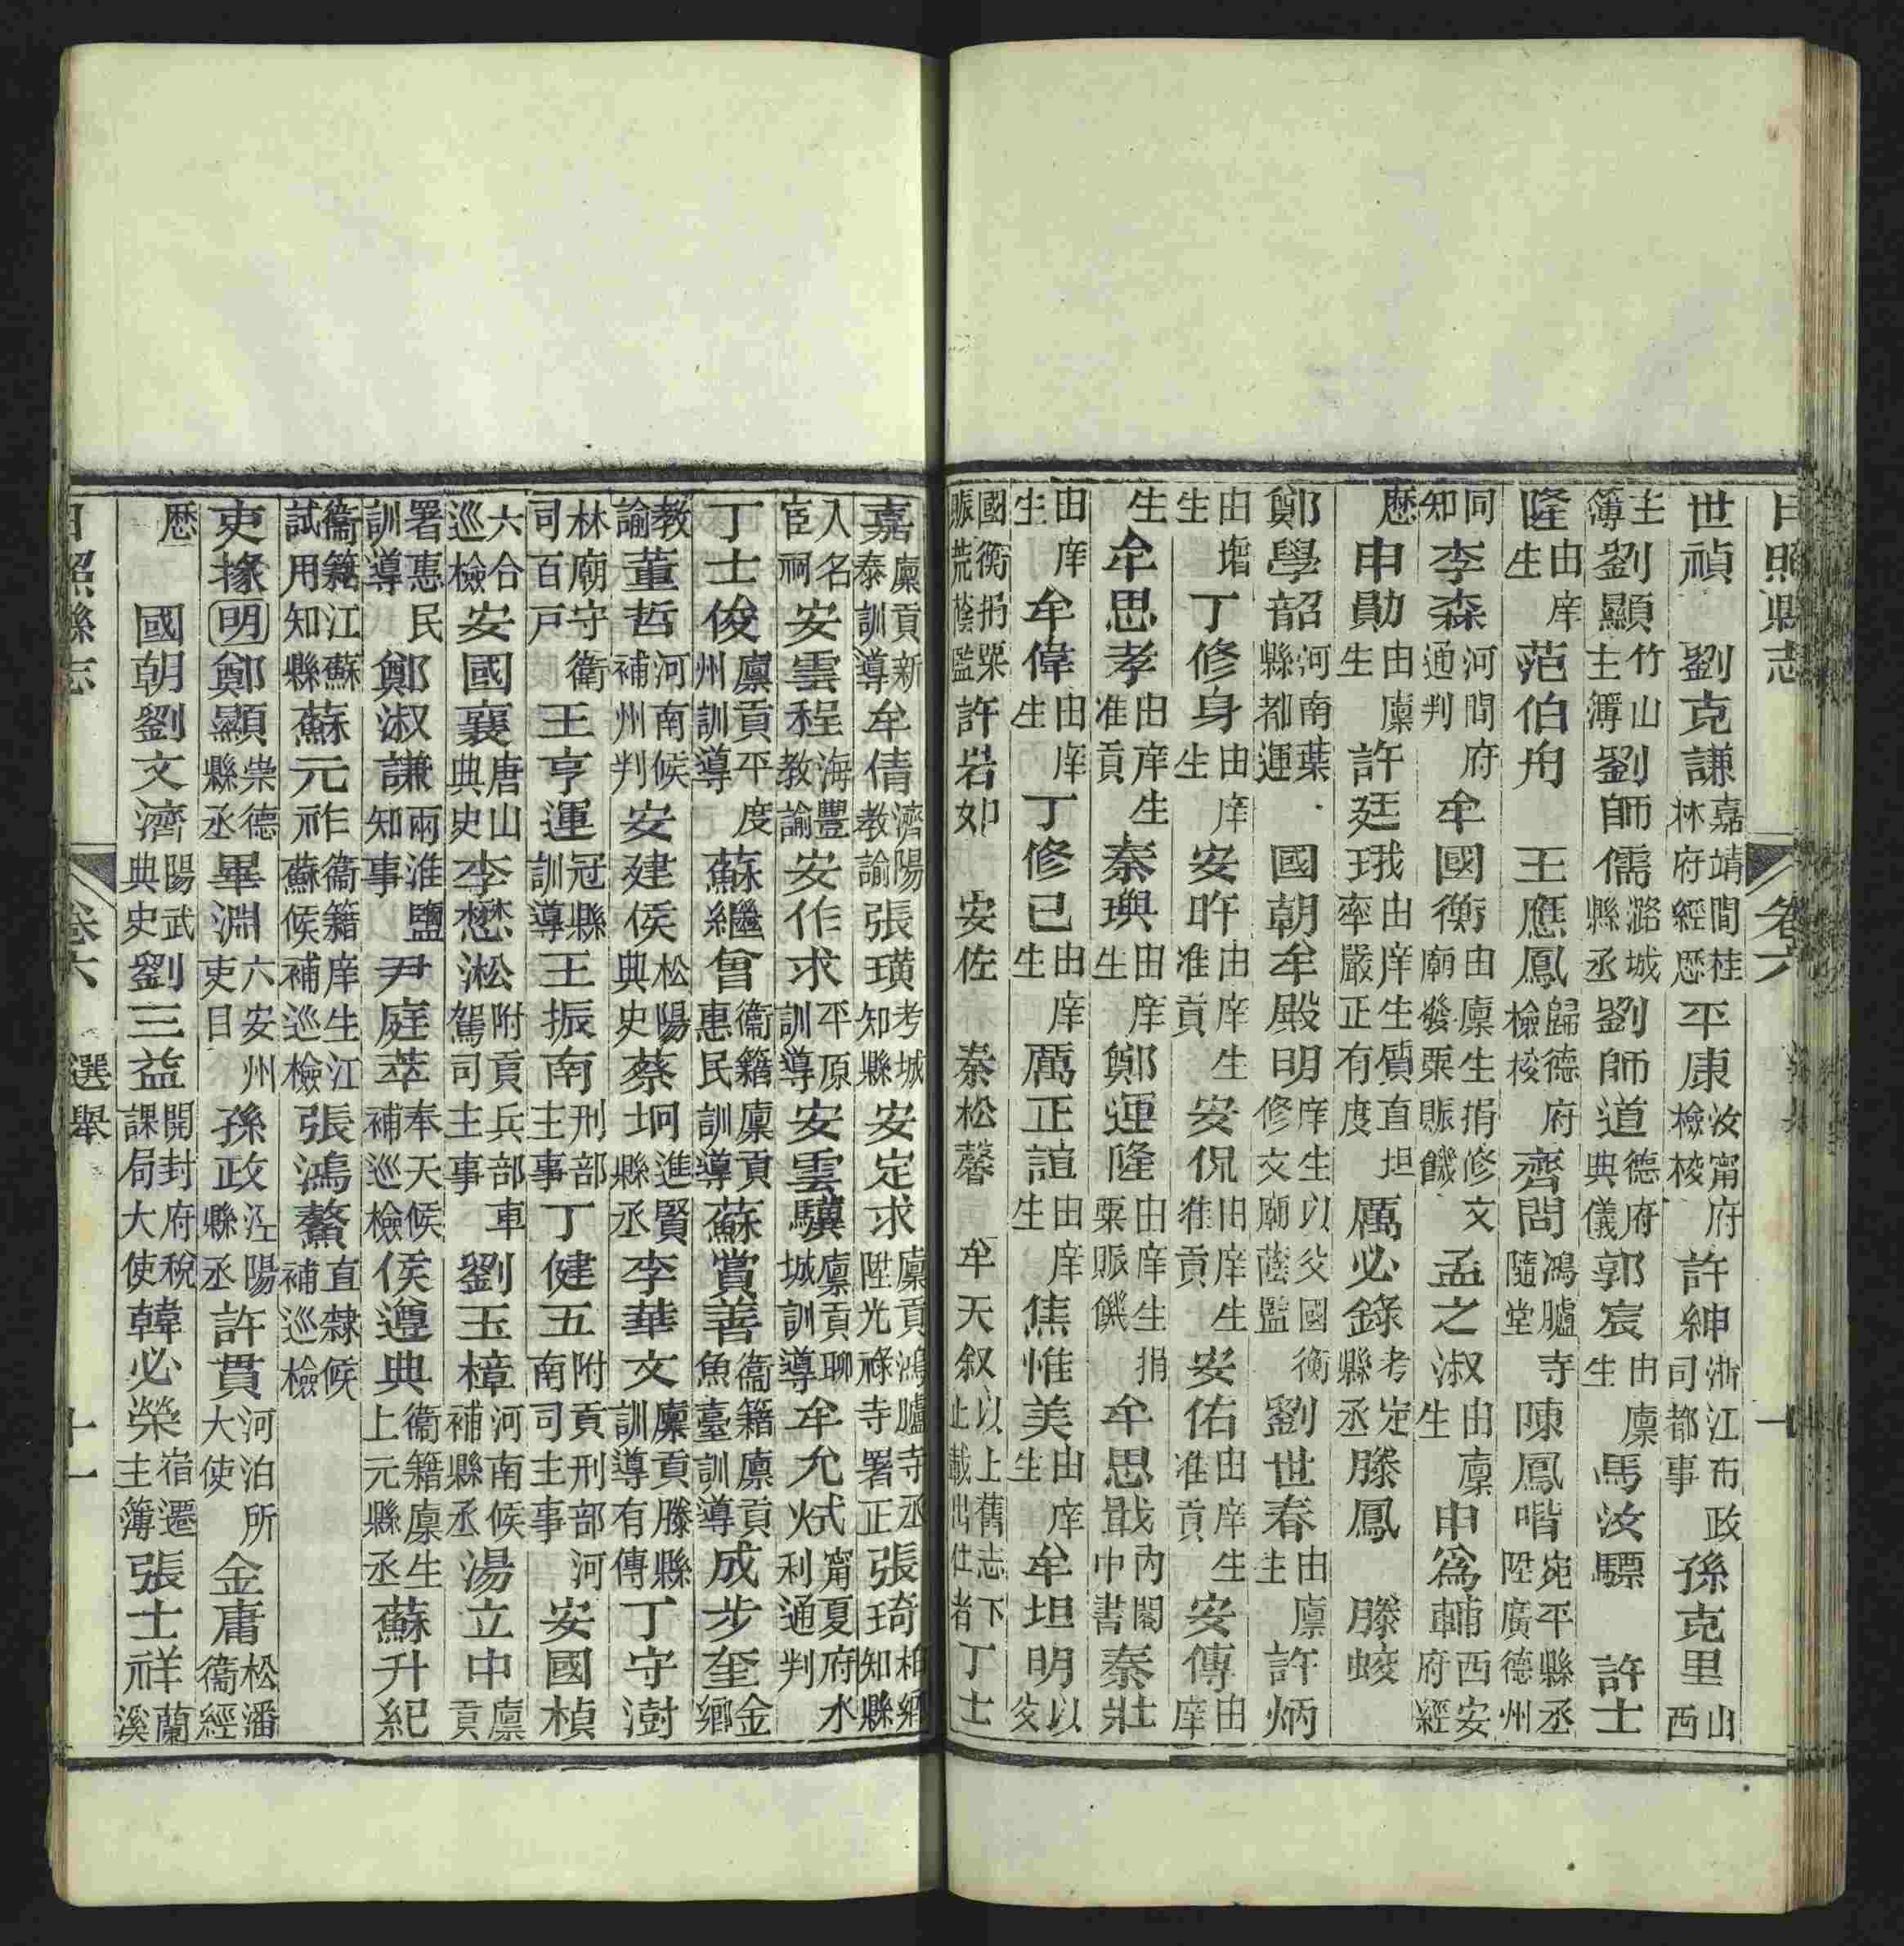 日照縣志 卷六
世禎 劉克謙嘉靖間桂林府經歷 平康汝甯府檢校 許紳浙江布政司都事 孫克里山西
主簿 劉顯竹山主簿 劉師儒潞城縣丞 劉師道德府典儀 郭宸由廩生 馬汝驃 許士
隆由庠生 范伯舟 王應鳳歸德府檢校 齊問鴻臚寺隨堂 陳鳳喈宛平縣丞陞廣德州
同知 李森河間府通判 牟國衡由廩生捐修文廟發粟賑饑 孟之淑由廩生 申爲輔西安府經
歷 申勛由廩生 許廷珴由庠生質直坦率嚴正有度 厲必錄考定縣丞 滕鳳 滕蛟
鄭學韶河南葉縣都運 國朝牟殿明庠生以父國衡修文廟蔭監 劉世春由廩主 許炳
由增生 丁修身由庠生 安昨由庠生准貢 安侃由庠生准貢 安佑由庠生准貢 安傳由庠
生 牟思孝由庠生准貢 秦璵由庠生 鄭運隆由庠生捐粟賑饑 牟思戢內閣中書 秦壯
由庠生 牟偉由庠生 丁修已由庠生 厲正誼由庠生 焦惟美由庠生 牟坦明以父
國衡捐粟賑荒蔭監 許岩如 安佐 秦松馨 牟天叙以上舊志下止載出仕者 丁士
嘉廩貢新泰訓導 牟倩濟陽教諭 張璜考城知縣 安定求廩貢鴻臚寺寺丞陞光祿寺署正 張琦柏鄉知縣
入名宦祠 安雲程海豐教諭 安作求平原訓導 安雲驥廩貢聊城訓導 牟允烒甯夏府水利通判
丁士俊廩貢平度州訓導 蘇繼曾衞籍廩貢惠民訓導 蘇賞善衞籍廩貢魚臺訓導 成步奎金鄉
教諭 董哲河南候補州判 安建侯松陽典史 蔡坰進賢縣丞 李華文廩貢滕縣訓導有傳 丁守澍
林廟守衛司百戸 王亨運冠縣訓導 王振南刑部主事 丁健五附貢刑部河南司主事 安國楨
六合巡檢 安國襄唐山典史 李懋淞附貢兵部車駕司主事 劉玉樟河南候補縣丞 湯立中廩貢
署惠民訓導 鄭淑謙兩淮鹽知事 尹庭萃奉天候補巡檢 侯遵典衞籍廩生上元縣丞 蘇升紀
衞籍江蘇試用知縣 蘇元祚衞籍庠生江蘇候補巡檢 張鴻鰲直隸候補巡檢
吏掾 明鄭顯崇德縣丞 畢淵六安州吏目 孫政江陽縣丞 許貫河泊所大使 金庸松潘衞經
歷 國朝劉文濟陽武典史 劉三益開封府稅課局大使 韓必榮宿遷主簿 張士祥蘭溪
日照縣志 卷六 選舉 十一